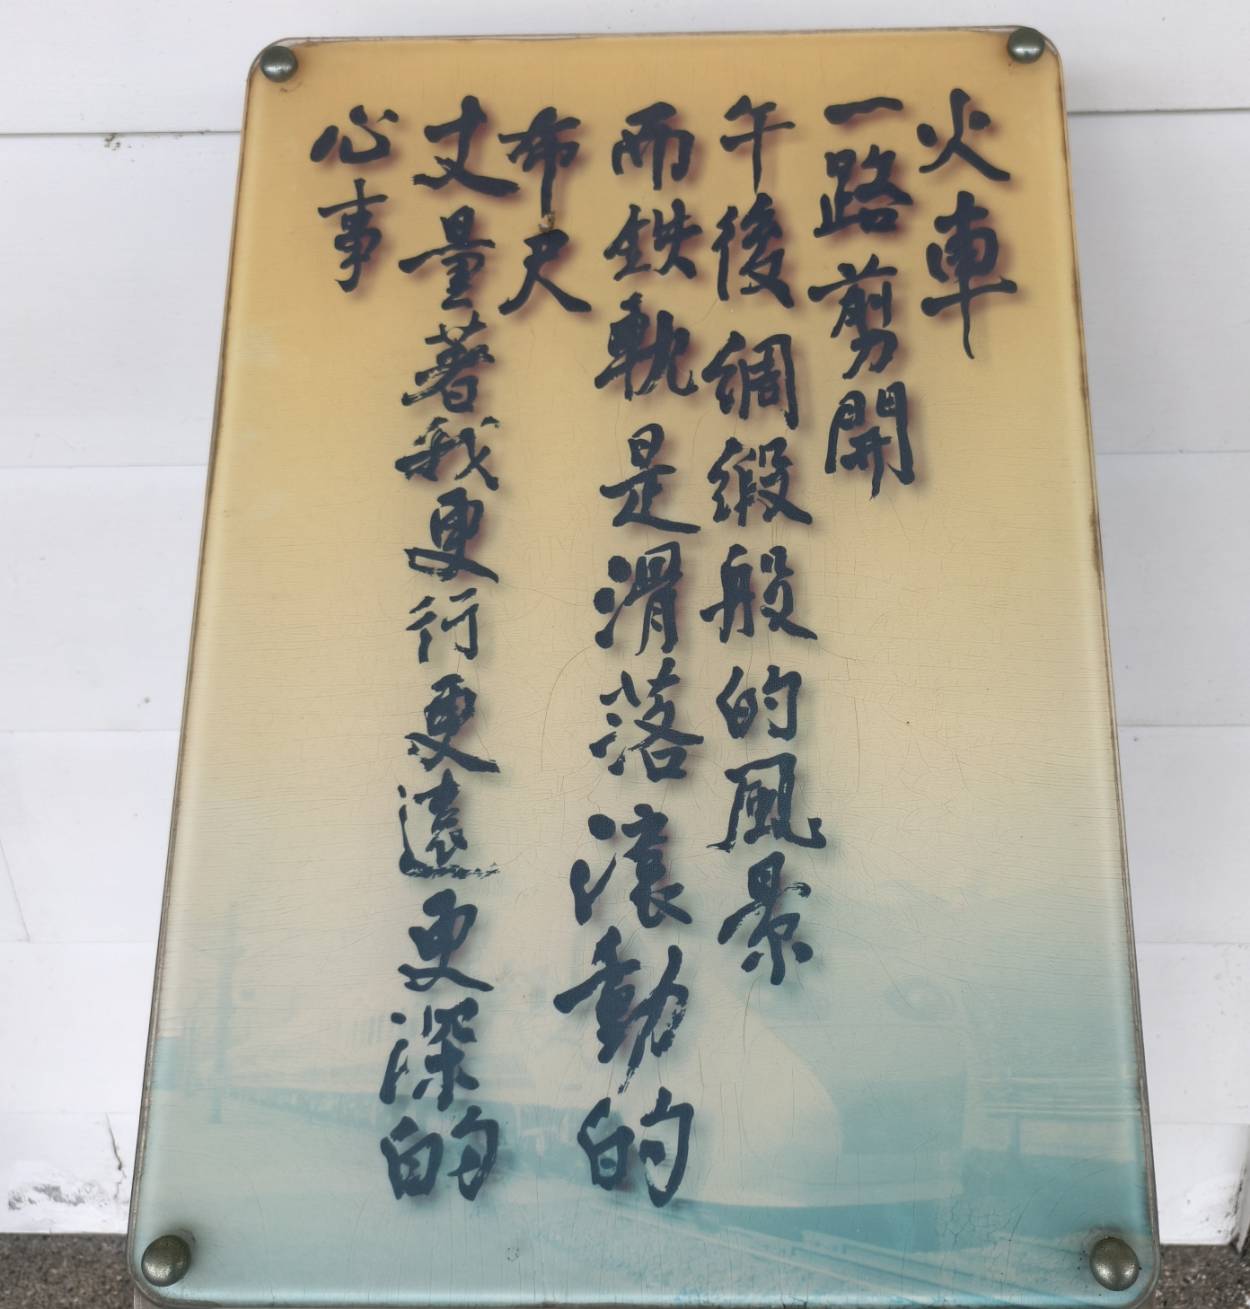 火車
一路剪開
午後綢緞般的風景
而鉄軌是滑落滾動的
布尺
丈量著我更行更遠更深的
心事